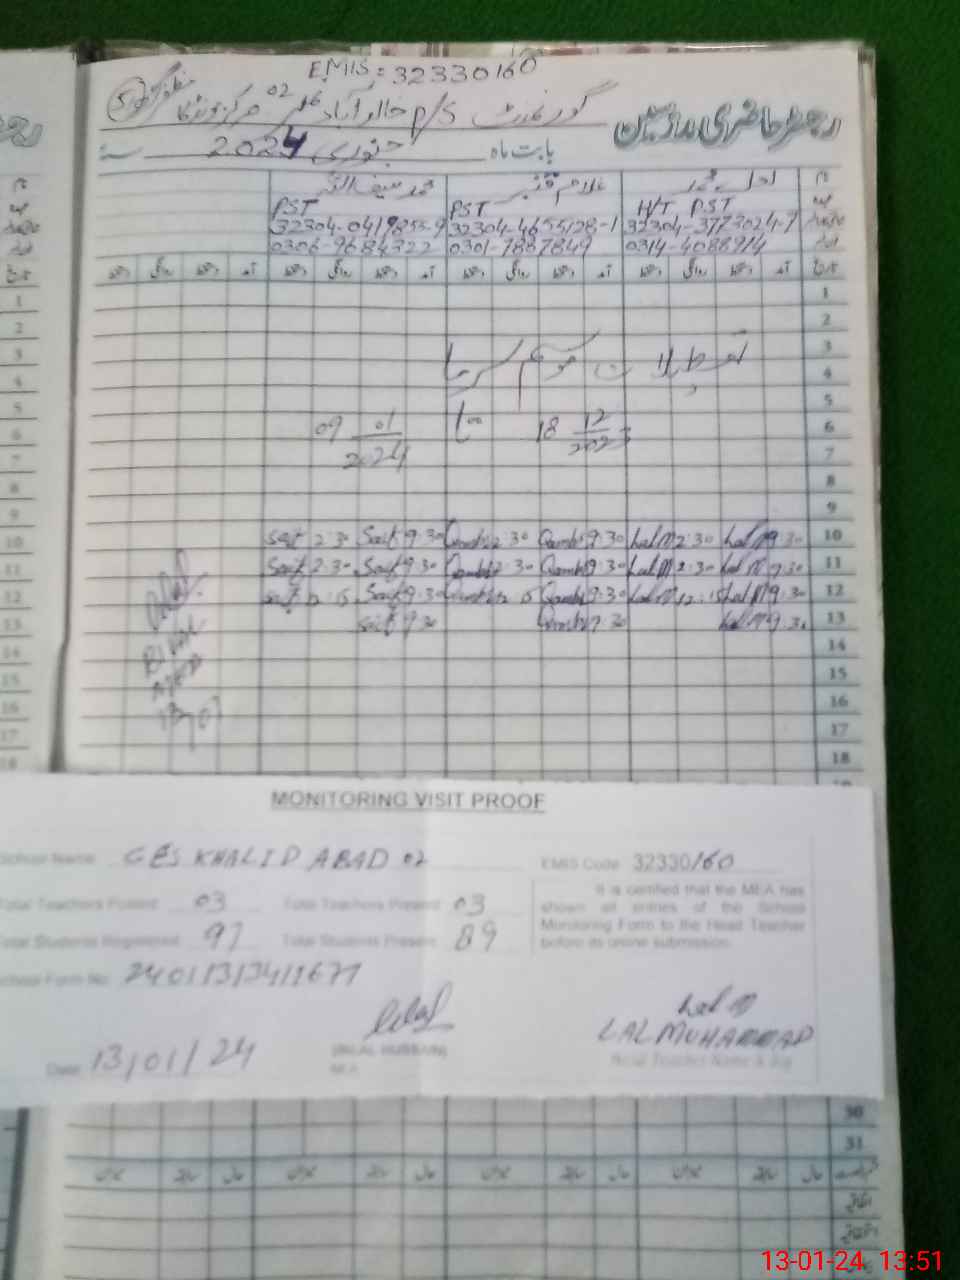 EMIS: 32330160
گورنمنٹ P/S خالد آباد 02
رجسٹر حاضری مدرسین
بابت ماہ جنوری 2024
لعل محمد غلام قنبر محمد سیف اللہ
H/T PST PST PST
32304-3773024-7 32304-4655128-1 32304-0419853-9
0314-4088914 0301-7887849 0306-9684322
1
2
3
تعطیلات موسم سرما
4
5
18 12/2023 تا 09 01/2024
6
7
8
9
Saif 2:30 Saif 9:30 Qambr 2:30 Qambr 9:30 Lal M 2:30 Lal M 9:30 10
Saif 2:30 Saif 9:30 Qambr 2:30 Qambr 9:30 Lal M 2:30 Lal M 9:30 11
Saif 12:15 Saif 9:30 Qambr 12:15 Qambr 9:30 Lal M 12:15 Lal M 9:30 12
Saif 9:30 Qambr 9:30 Lal M 9:30 13
14
15
16
17
18
MONITORING VISIT PROOF
School Name: GES KHALID ABAD 02 EMIS Code 32330160
Total Teachers Posted: 03 Total Teachers Present: 03
Total Students Registered: 97 Total Students Present: 89
It is certified that the MEA has
shown all entries of the School
Monitoring Form to the Head Teacher
before its online submission.
School Form No:
Lal M
LAL MUHAMMAD
(BILAL HUSSAIN)
MEA
Head Teacher Name & Sig
Date: 13/01/24
30
31
13-01-24 13:51